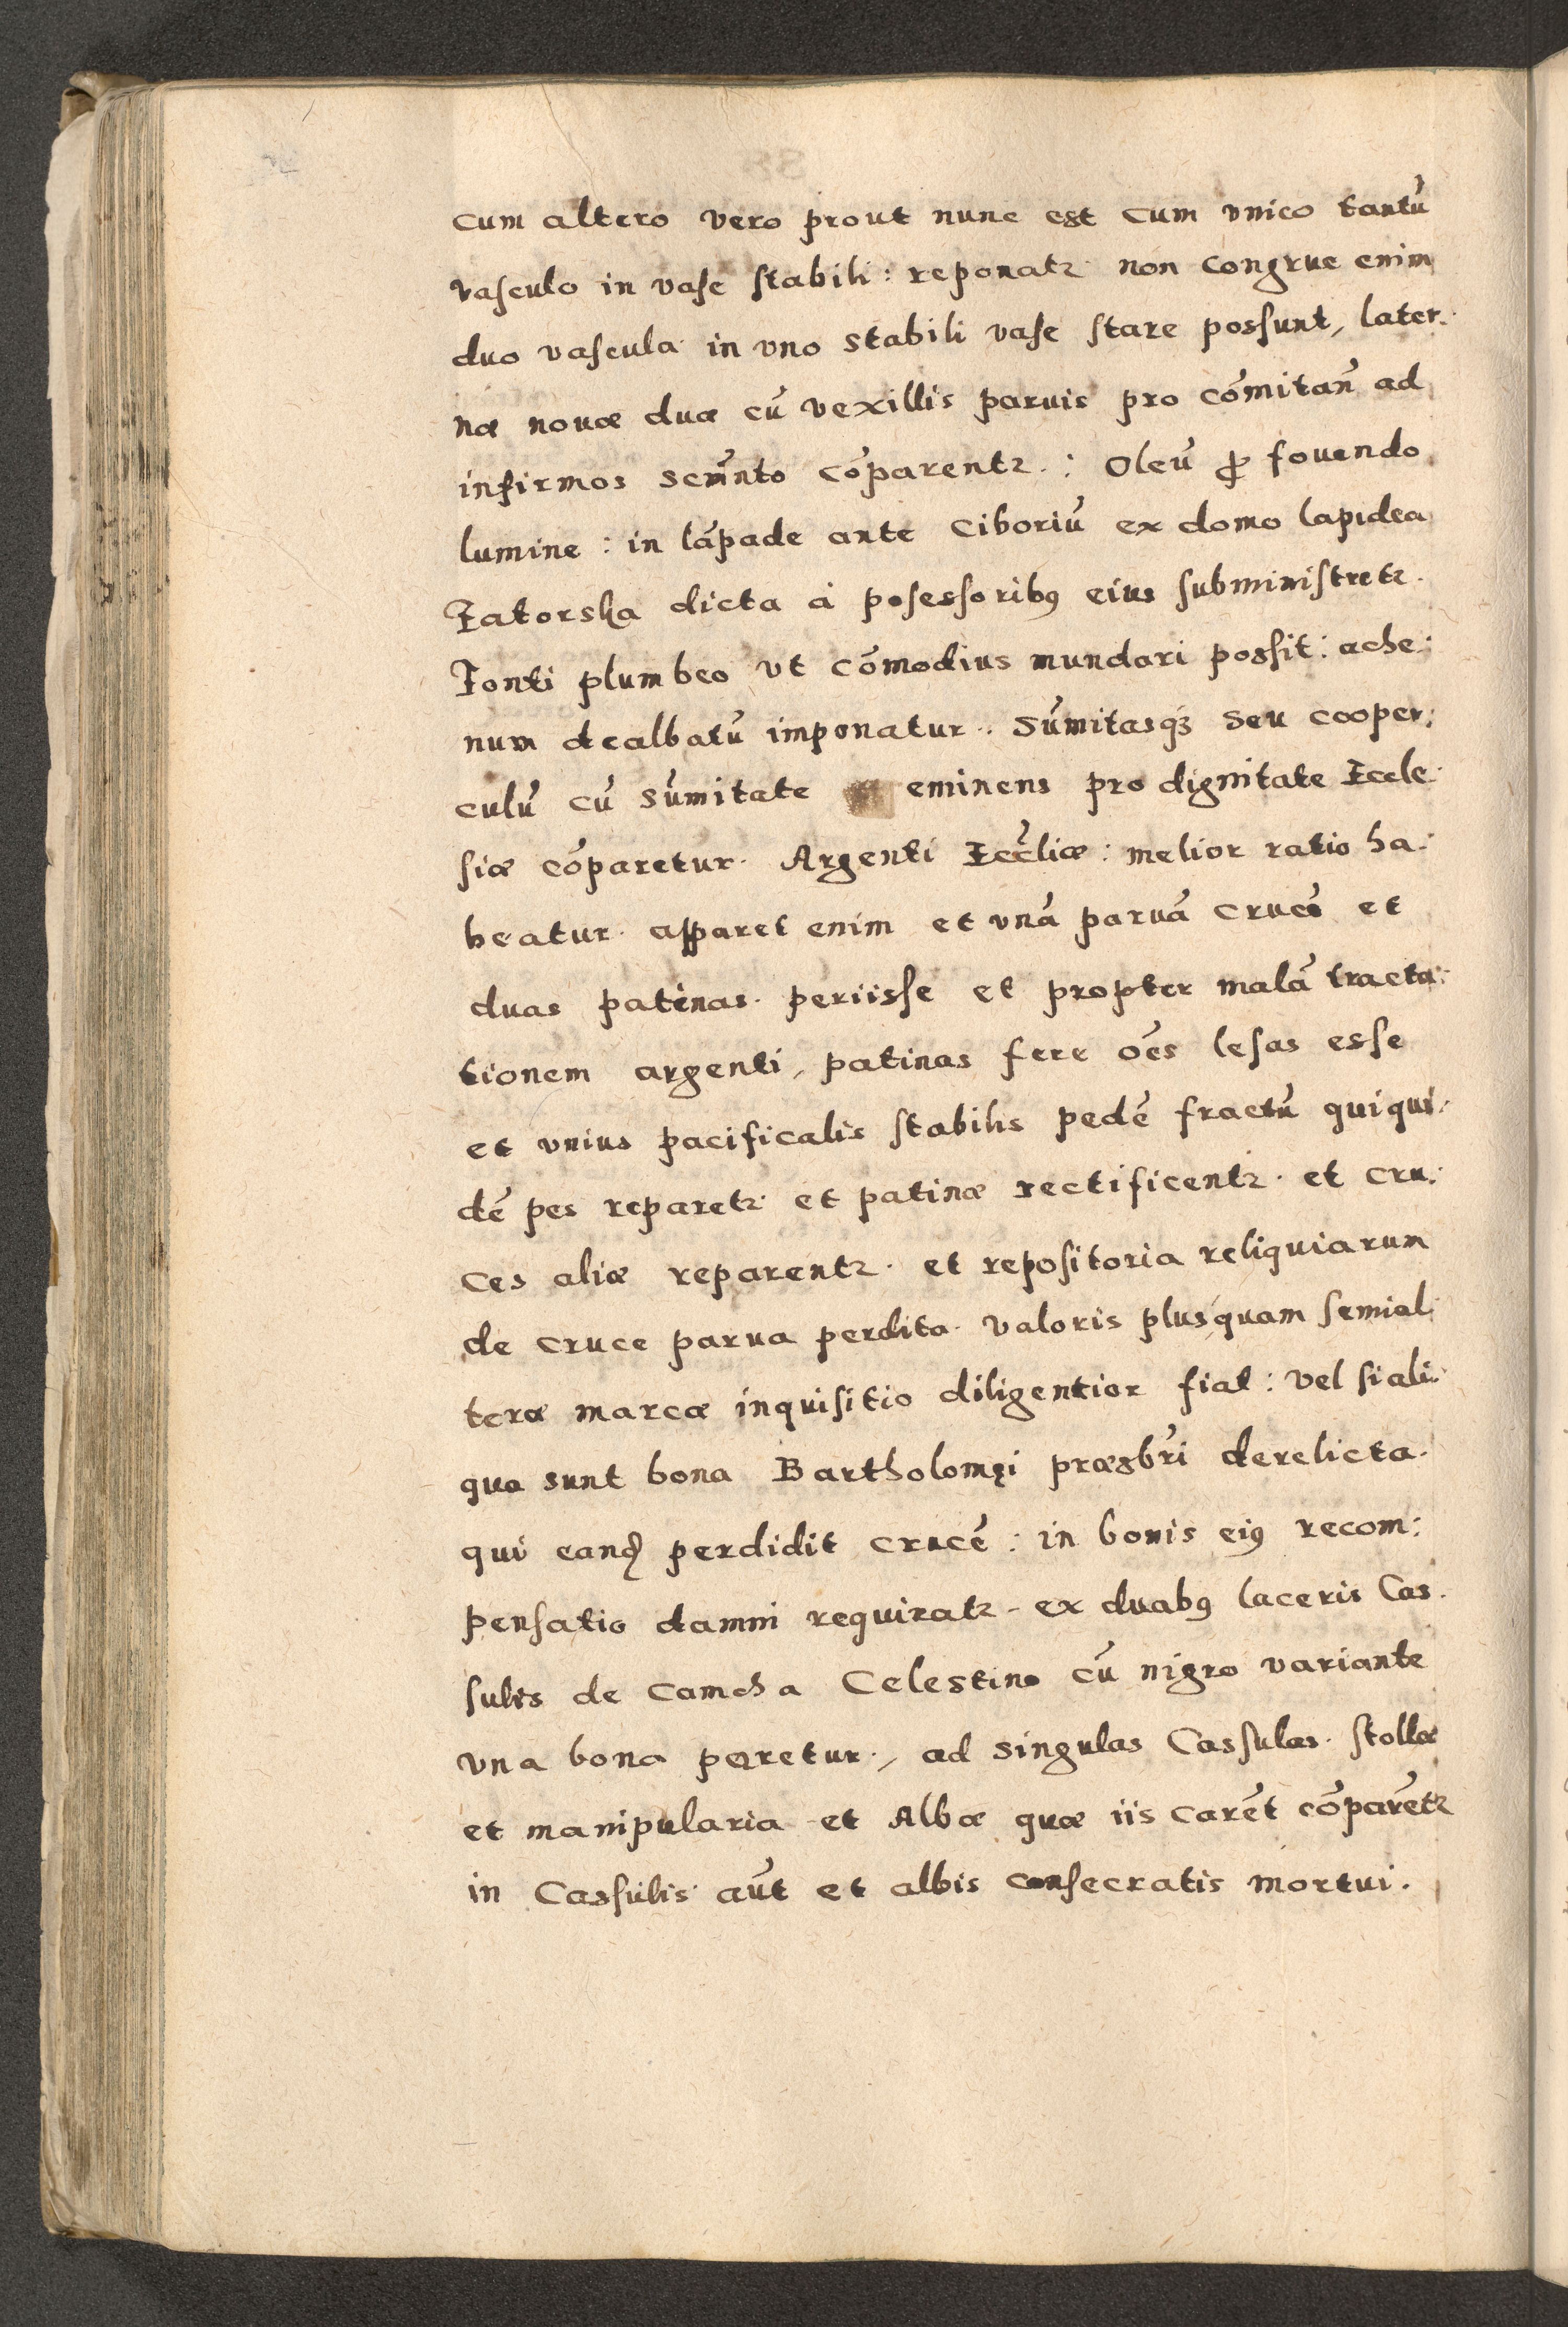 cum altero vero prout nunc est cum vnico tantū
vasculo in vase stabili: reponatr non congrue enim
duo vascula in vno stabili vase stare possunt, later:
næ nouæ duæ cū vexillis paruis pro cōmitan̄ ad
infirmos scm̄nto cōparentr: Oleū ꝓ fouendo
lumine: in lāpade ante Ciboriū ex domo lapidea
Fatorska dicta à posessoribꝫ eius subministretr.
Fonti plumbeo vt cōmodius mundari possit: ache:
num dealbatū imponatur. Sūmitasqꝫ seu cooper:
culū cū sūmitate eminens pro dignitate Eccle
siæ cōparetur. Argenti Eccl̄iæ: melior ratio ha:
beatur. apparet enim et vnā paruā crucē et
duas patinas periisse et propter malā tracta:
tionem argenti, patinas fere ōēs lesas esse
et vnius pacificalis stabilis pedē fractū quiqui:
dē pes reparetr et patinæ rectificentr. et cru:
ces aliæ reparentr. et repositoria reliquiarum
de cruce parua perdita valoris plusquam semial:
teræ marcæ inquisitio diligentior fiat: vel si ali:
qua sunt bona Bartholomęi præsbr̄i derelicta.
qui eandꝫ perdidit crucē: in bonis eiꝰ recom:
pensatio damni requiratr. ex duabꝰ laceris Cas:
sulis de camcha Celestino cū nigro variante
vna bona paretur, ad singulas Cassulas. stollæ
et manipularia et Albæ quæ iis carēt cōparētr
in Cassulis aūt et albis consecratis mortui.